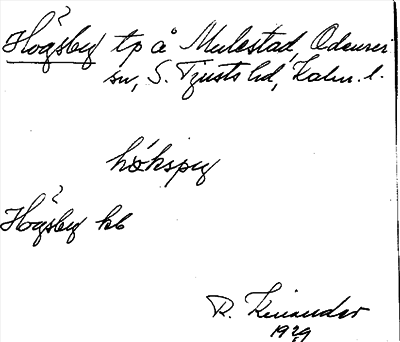 Högsby tp å Mulestad, Odensvi
sn, S. Tjusts hd, Kalm. l.
hökspy
Högsby kb
R. Kinander
1929